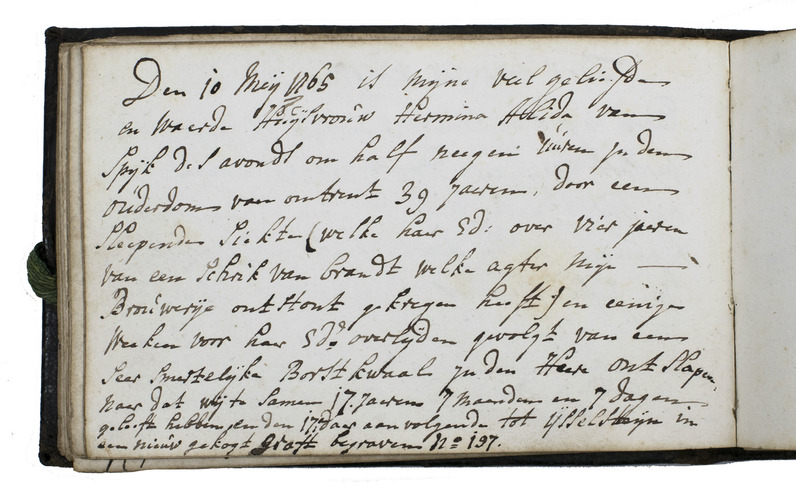 Den 10 Meij 1765 is mijne veel geliefde
en waerde Huijsvrouw Hermina Alida van
Spijk des avonds om half neegen uuren in den
ouderdom van omtrent 39 Jaeren, door een
sleepende Siekte (welke haer Ed: over vier jaeren
van een schrik van brandt welke agter mijn
Brouwerije ontstont gekregen heeft) en eenige
Weeken voor haer Ed.s overlijden gevolgt van een
seer smertelijke Borstkwaal in den Heere ontslapen,
naer dat wij te samen 17 Jaeren 7 maenden en 7 dagen
geleeft hebben, en den 17. daer aan volgende tot IJsselsteijn in
een nieuw gekogt graft begraven No 197.